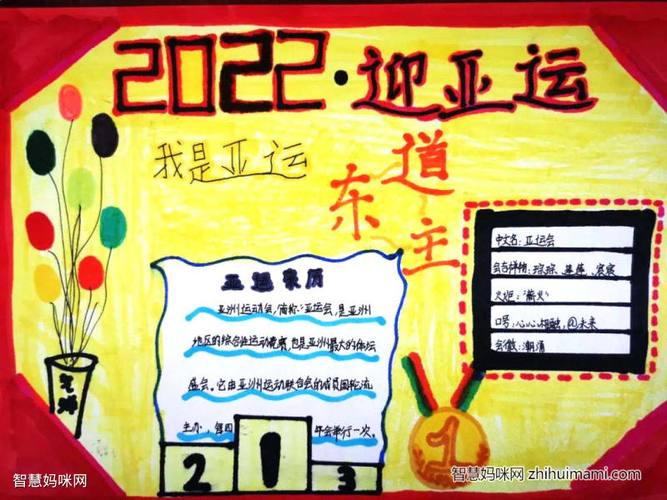 2022·迎亚运
我是亚运
东道主
亚运来历
亚洲运动会,简称:亚运会,是亚洲
地区的综合性运动竞赛,也是亚洲最大的体坛
盛会。它由亚洲运动联合会的成员国轮流
主办,每四 年会举行一次。
2 1 3
中文名:亚运会
会吉祥物:琮琮、莲莲、宸宸
火炬:"薪火"
口号:心心相融,@未来
会徽:潮涌
1
智慧妈咪网
智慧妈咪网 zhihuimami.com